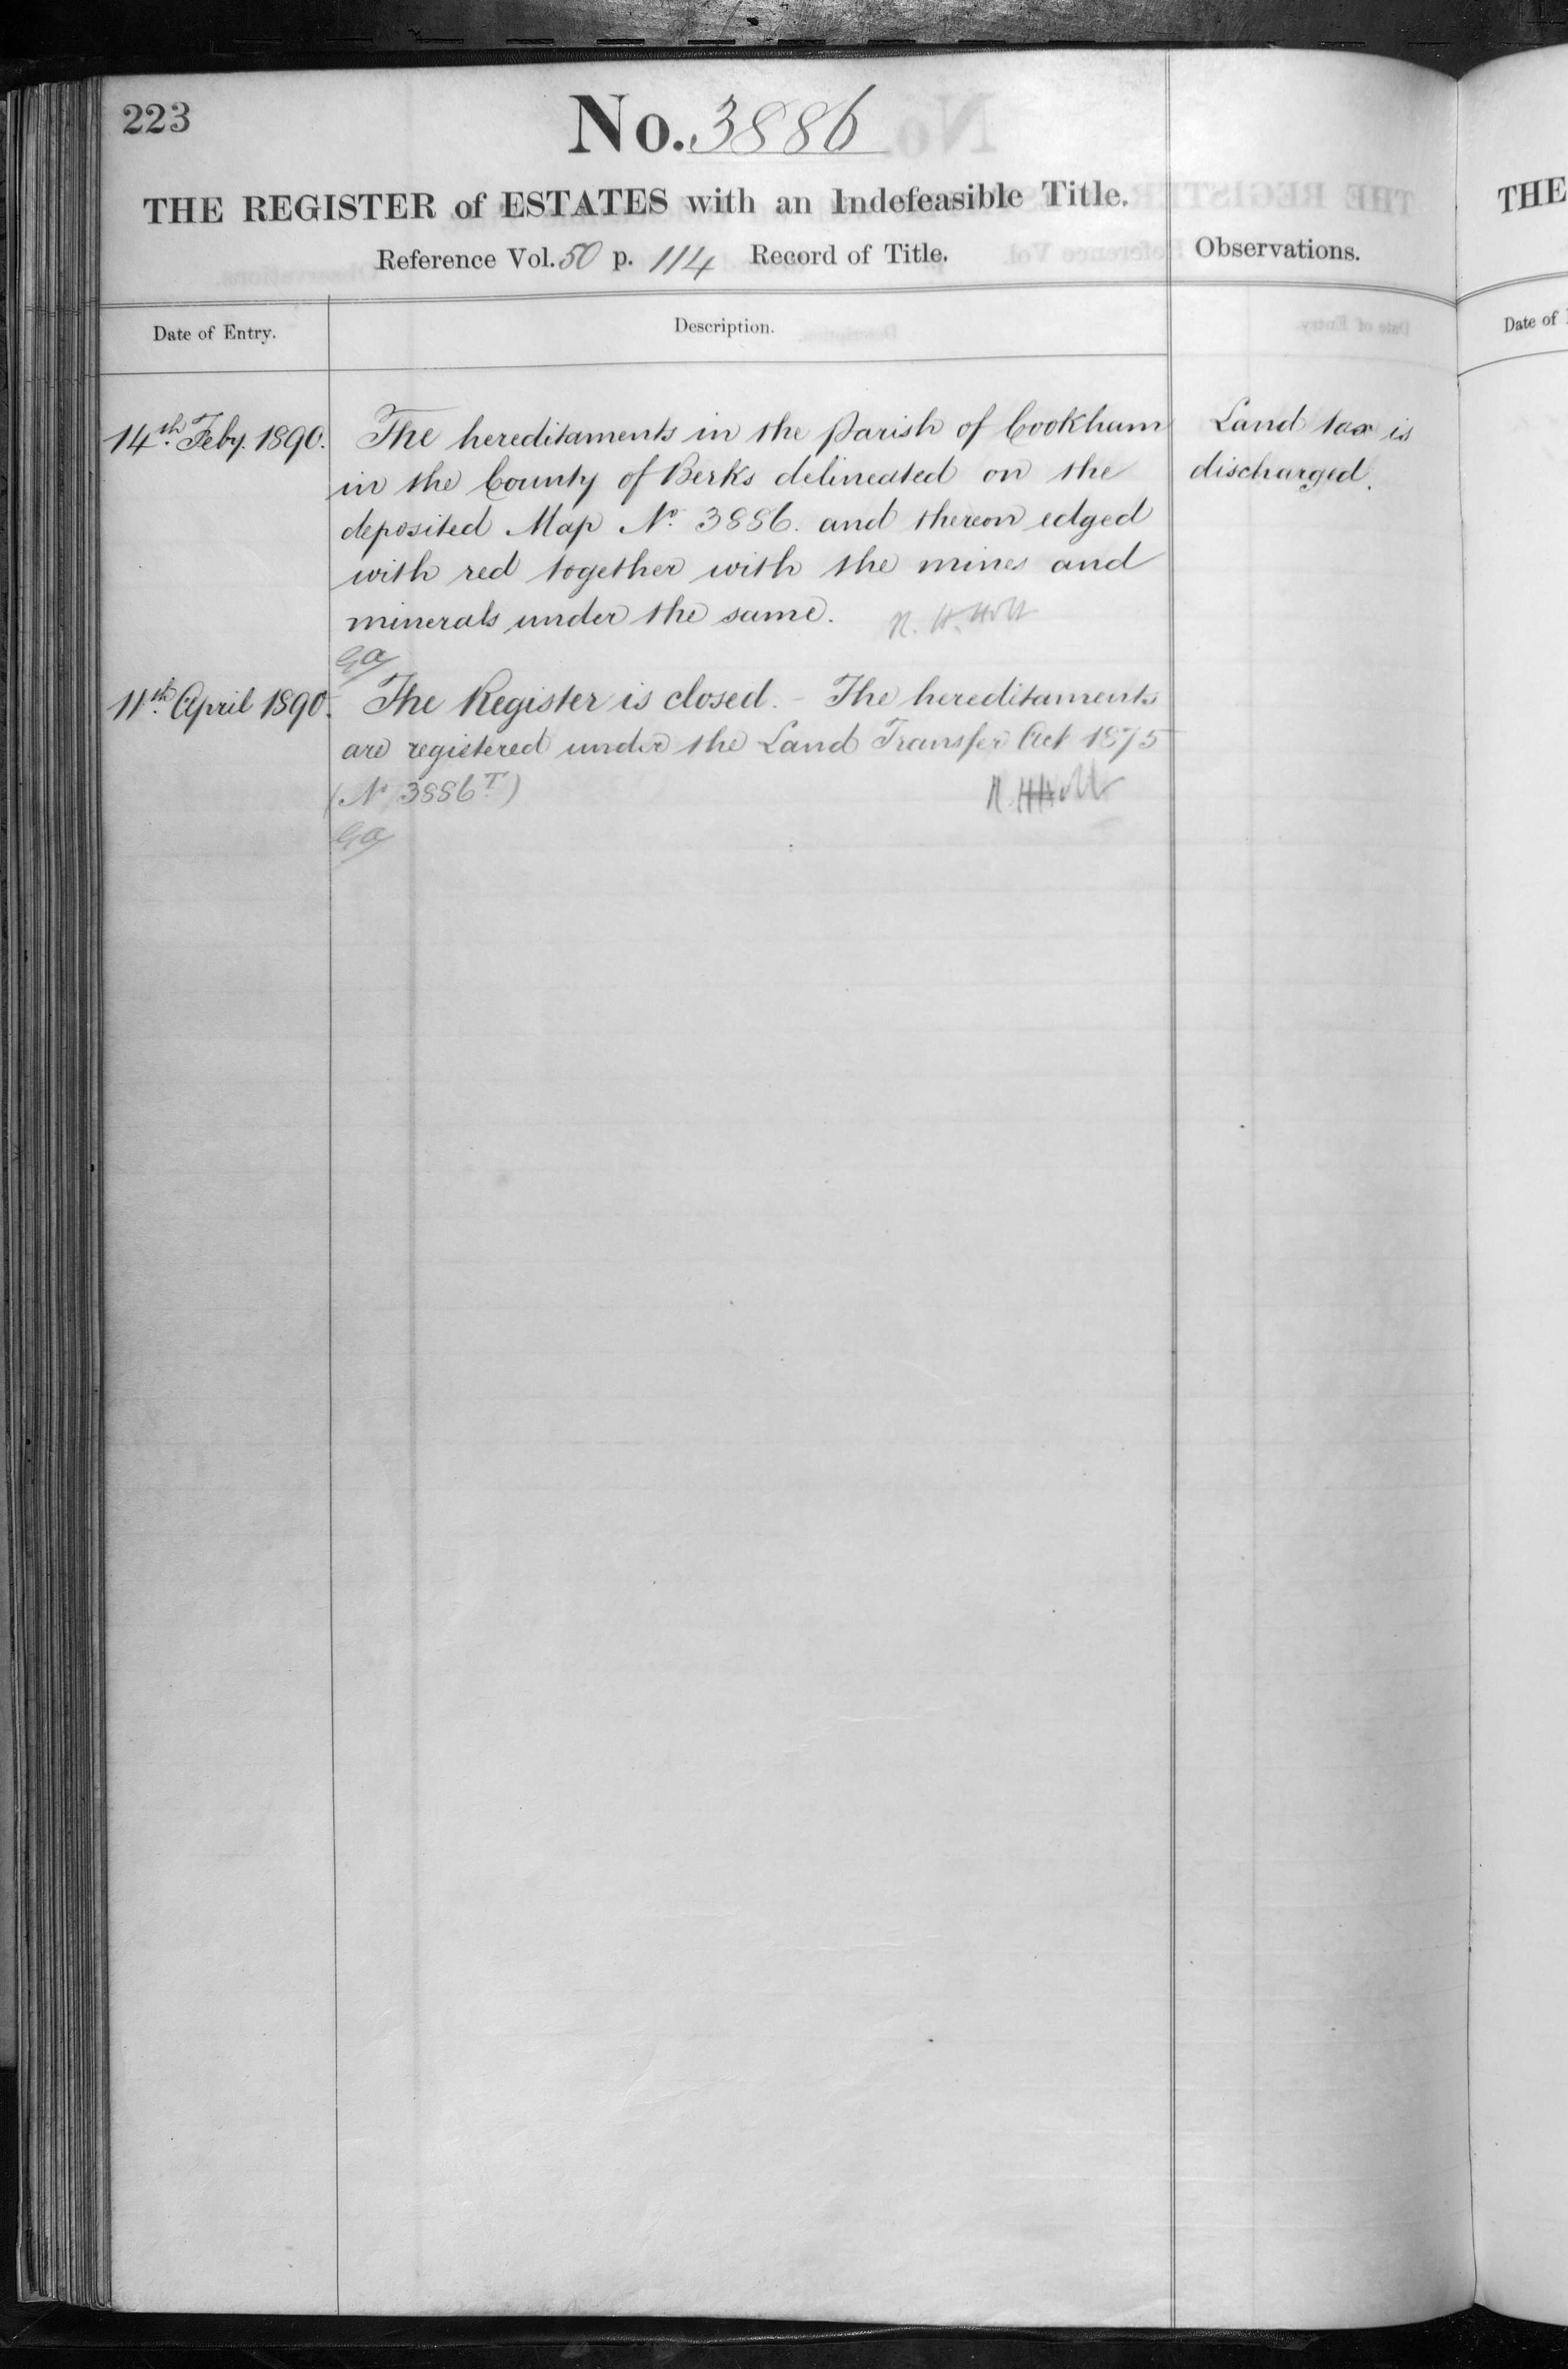 223
No. 3886
THE REGISTER of ESTATES with an Indefeasible Title.
Reference Vol. 50 p. 114 Record of Title.
Observations.
Date of Entry.
Description.
14th Feby. 1890.
The hereditaments in the Parish of Cookham
in the County of Berks delineated on the
deposited Map No. 3886. and thereon edged
with red together with the mines and
minerals under the same. R. H. Holt
Land tax is
discharged.
11th April 1890.
The Register is closed. - The hereditaments
are registered under the Land Transfer Act 1875
(No 3886 T)
R. H. Holt
THE
Date of